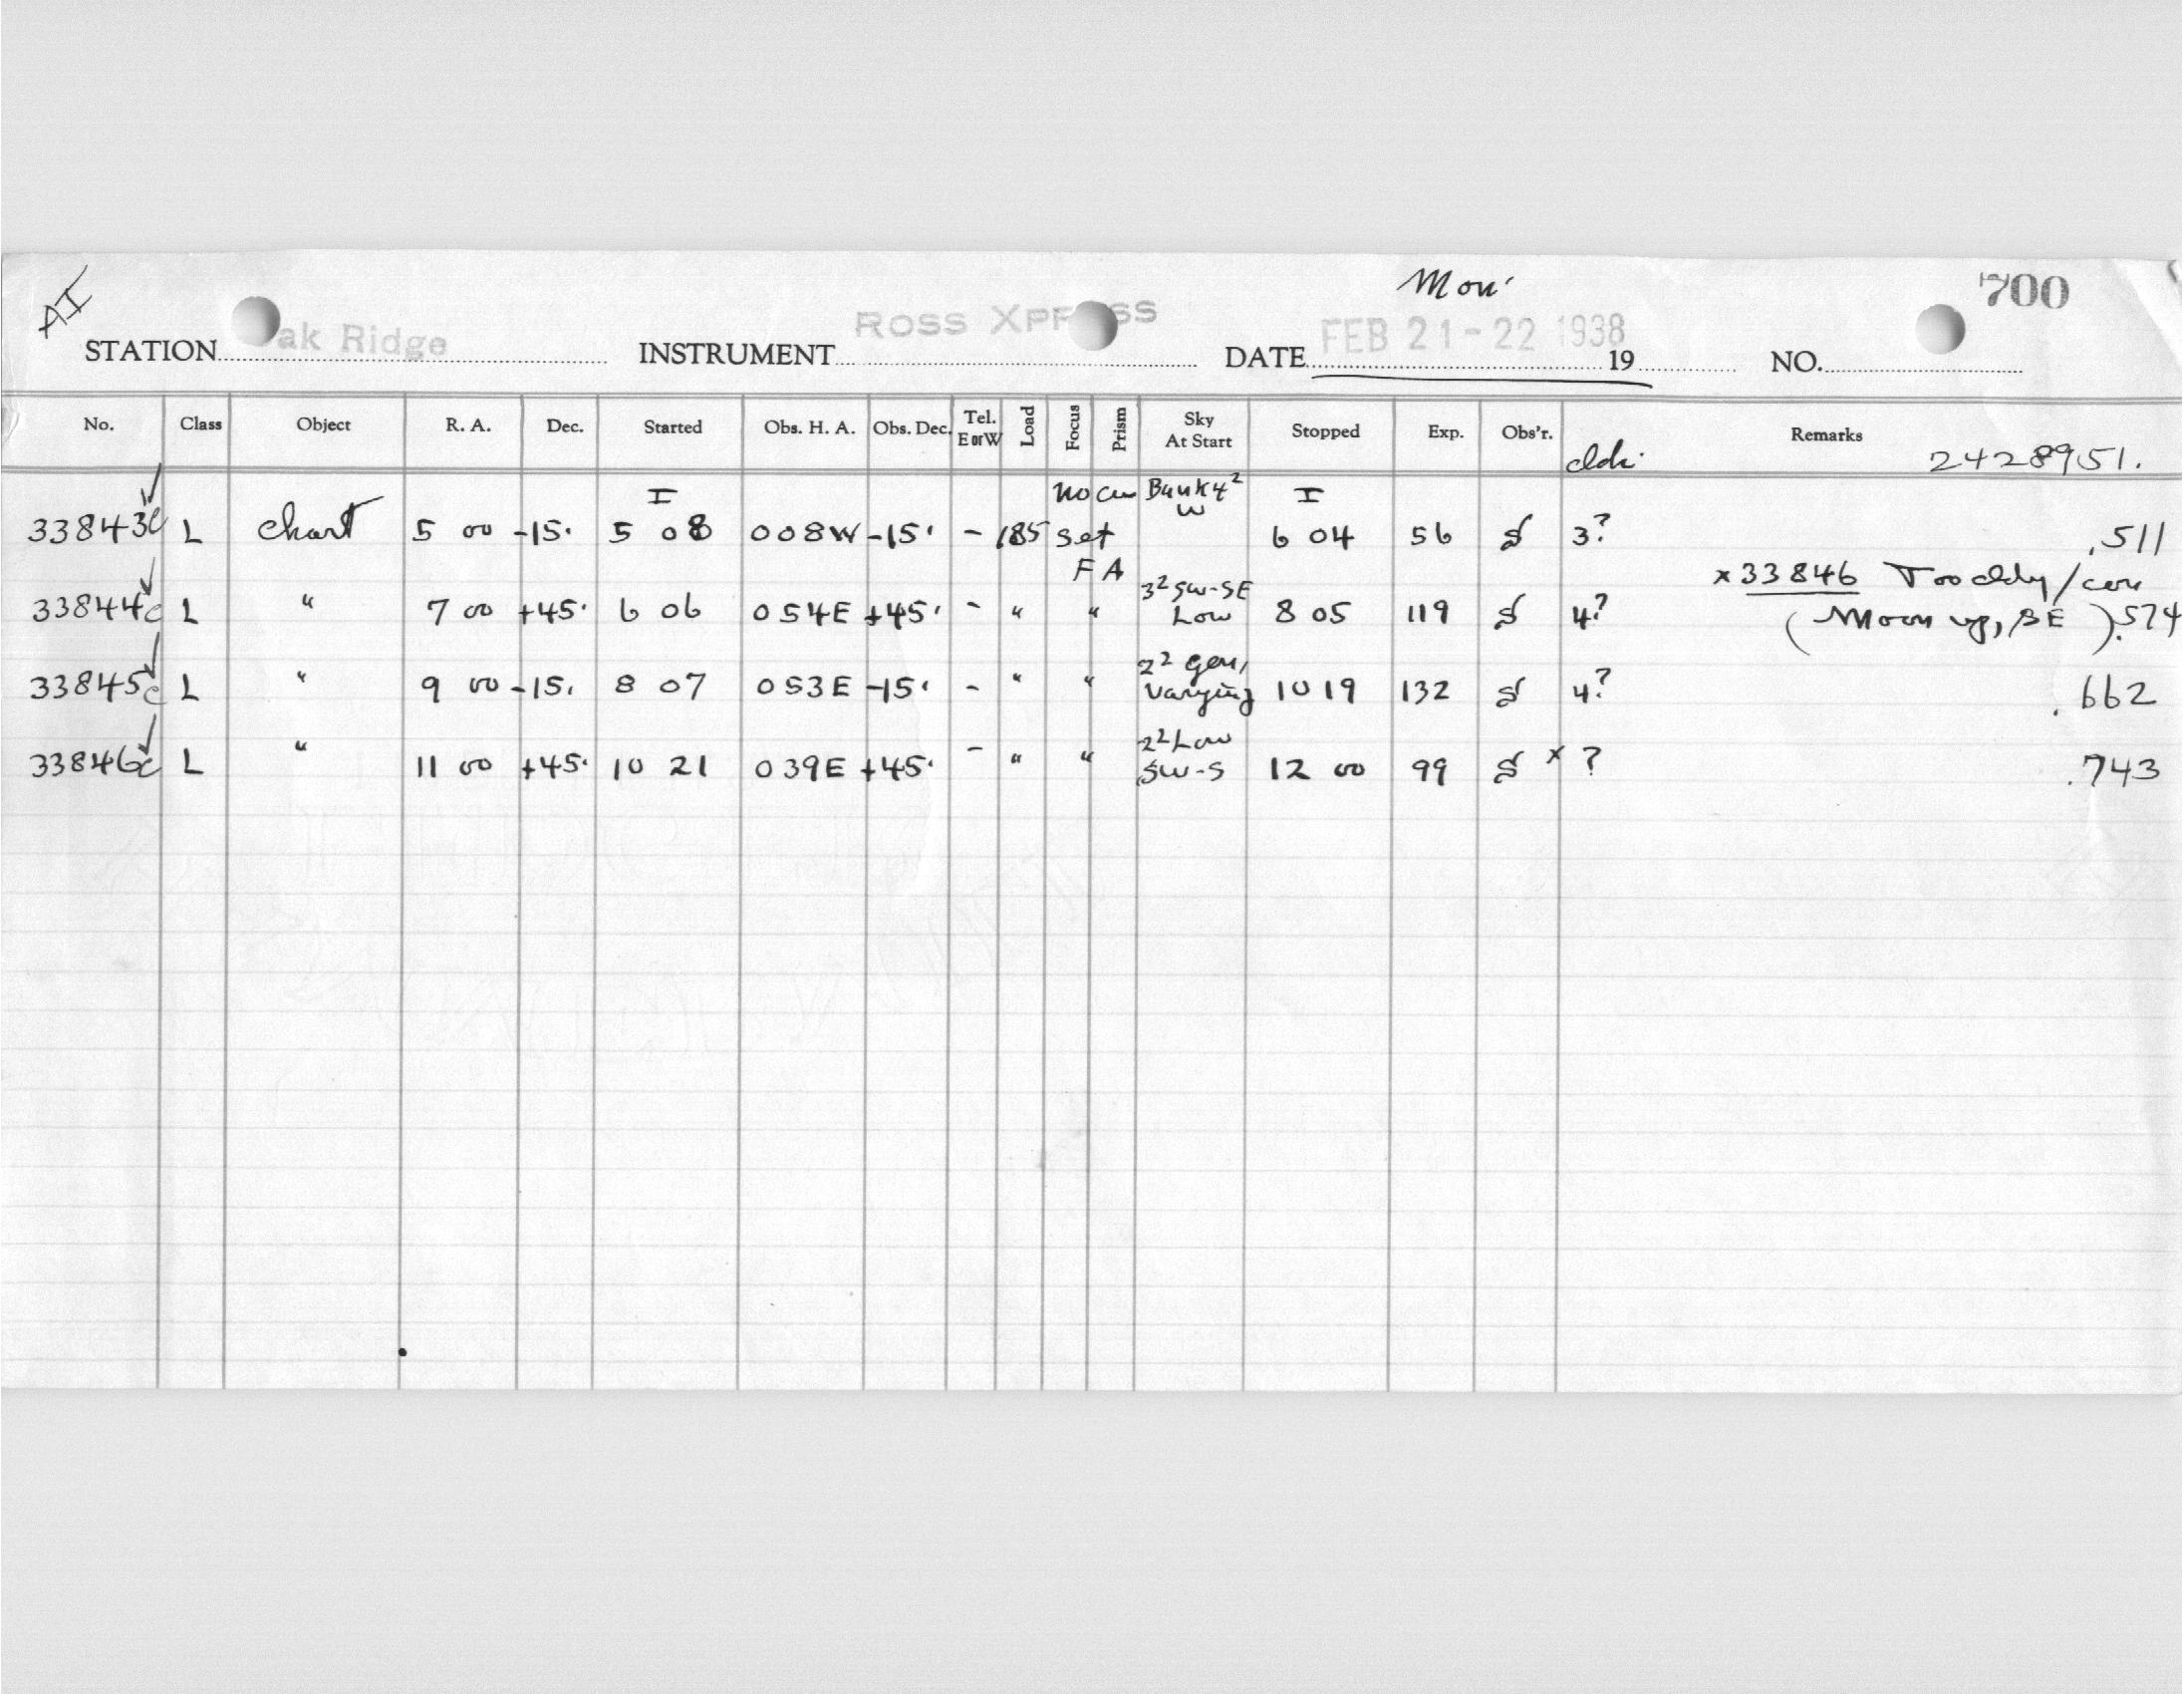 AI
Mon.
700
STATION ak Ridge INSTRUMENT ROSS XPRESS DATE FEB 21-22 1938 19 NO.
No. Class Object R. A. Dec. Started Obs. H. A. Obs. Dec. Tel. E or W Load Focus Prism Sky At Start Stopped Exp. Obs'r. Remarks
2428951.
I no Bank 4² W I
33843c L Chart 5 00 -15. 5 08 008W -15. - 185 set 6 04 56 S 3? .511
FA x 33846 Too cldy/
33844c L " 7 00 +45. 6 06 054E +45. - " " 3² SW-SE Low 8 05 119 S 4? (Moon up, SE) .574
33845c L " 9 00 -15. 8 07 053E -15. - " " 2² gen, varying 10 19 132 S 4? .662
33846c L " 11 00 +45. 10 21 039E +45. - " " 2² Low SW-S 12 00 99 S x ? .743